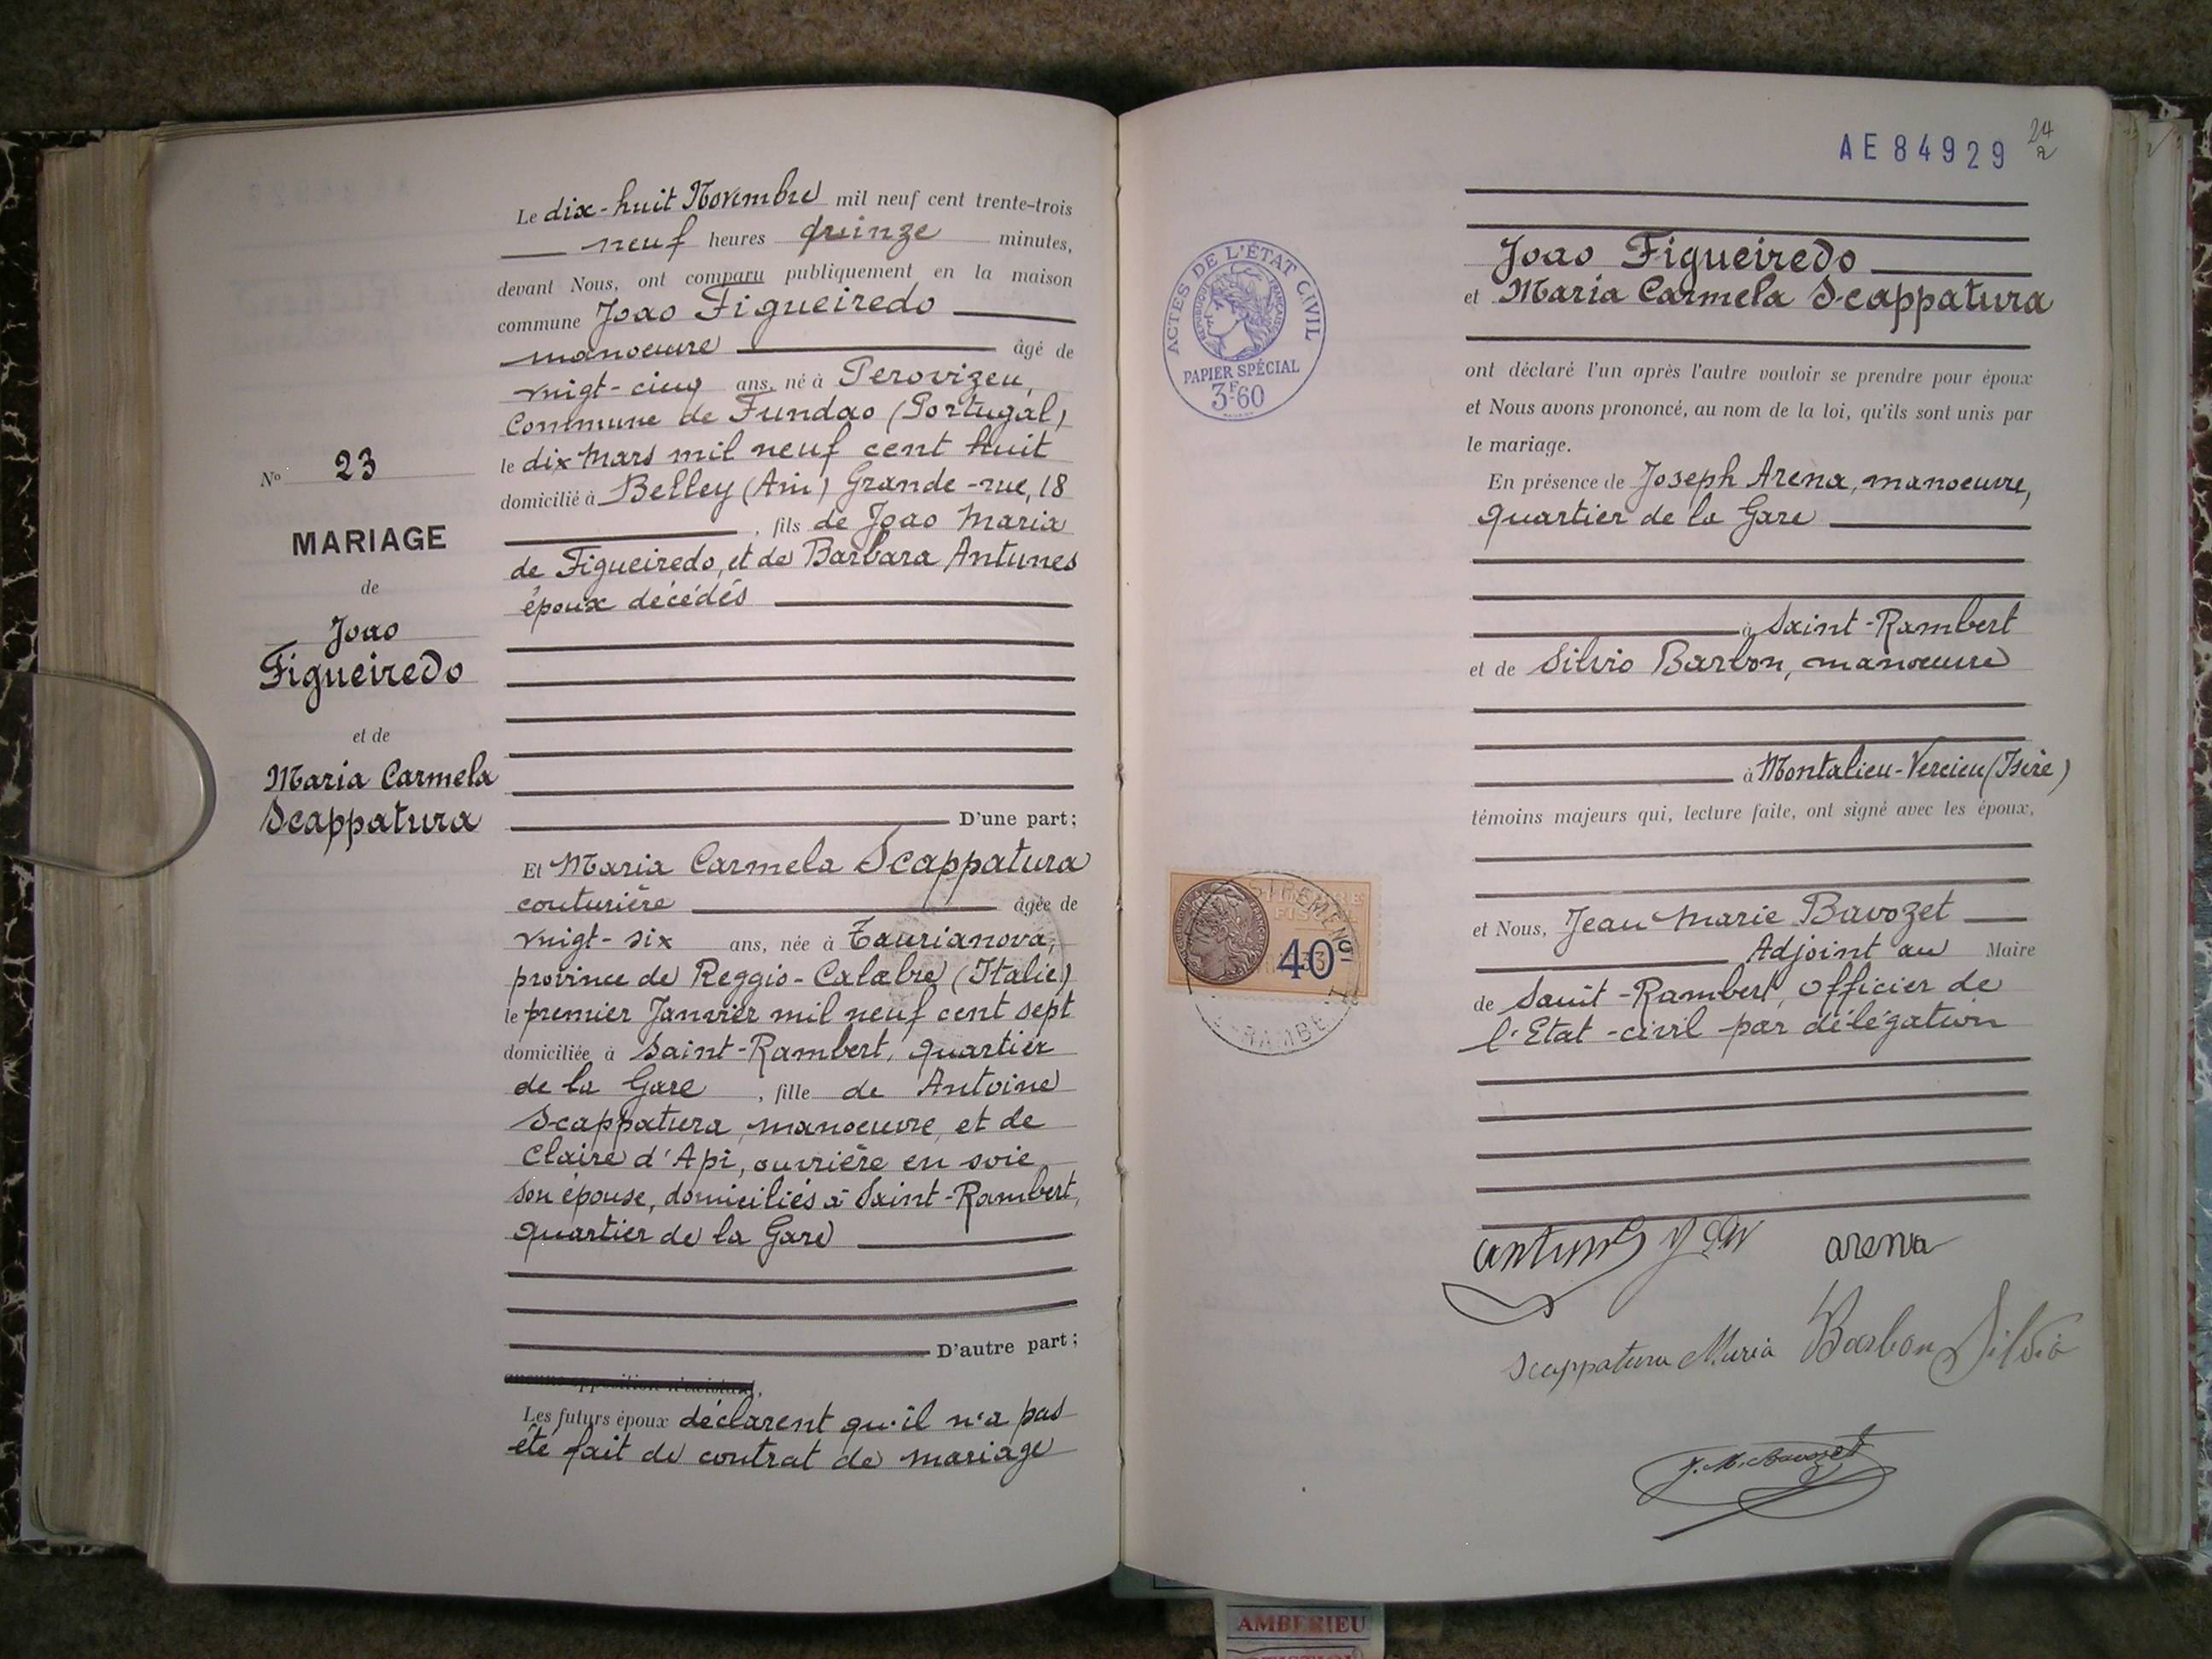 Le dix-huit Novembre mil neuf cent trente-trois
neuf heures quinze minutes,
devant Nous, ont comparu publiquement en la maison
commune Joao Figueiredo
manoeuvre âgé de
vingt-cinq ans, né à Perovizeu,
Commune de Fundao (Portugal)
le dix Mars mil neuf cent huit
domicilié à Belley (Ain) Grande-rue, 18
, fils de Joao Maria
de Figueiredo, et de Barbara Antunes
époux décédés
D'une part;
Et Maria Carmela Scappatura
couturière âgée de
vingt-six ans, née à Taurianova,
province de Reggio-Calabre (Italie)
le premier Janvier mil neuf cent sept
domiciliée à Saint-Rambert, quartier
de la Gare, fille de Antoine
Scappatura, manoeuvre, et de
Claire d'Api, ouvrière en soie
son épouse, domiciliés à Saint-Rambert,
quartier de la Gare
D'autre part;
Les futurs époux déclarent qu'il n'a pas
été fait de contrat de mariage
No 23
MARIAGE
de
Joao
Figueiredo
et de
Maria Carmela
Scappatura
AE84929
24
2
Joao Figueiredo
et Maria Carmela Scappatura
ont déclaré l'un après l'autre vouloir se prendre pour époux
et Nous avons prononcé, au nom de la loi, qu'ils sont unis par
le mariage.
En présence de Joseph Arena, manoeuvre,
quartier de la Gare
à Saint-Rambert
et de Silvio Barbon, manoeuvre
à Montalieu-Vercieu (Isère)
témoins majeurs qui, lecture faite, ont signé avec les époux,
et Nous, Jean Marie Bavozet
Adjoint au Maire
de Saint-Rambert, officier de
l'Etat-civil par délégation
arena
Scappatura Maria Barbon Silvio
J. M. Bavozet
ACTES DE L'ÉTAT CIVIL
RÉPUBLIQUE FRANÇAISE
PAPIER SPÉCIAL
3F60
40c
AMBERIEU